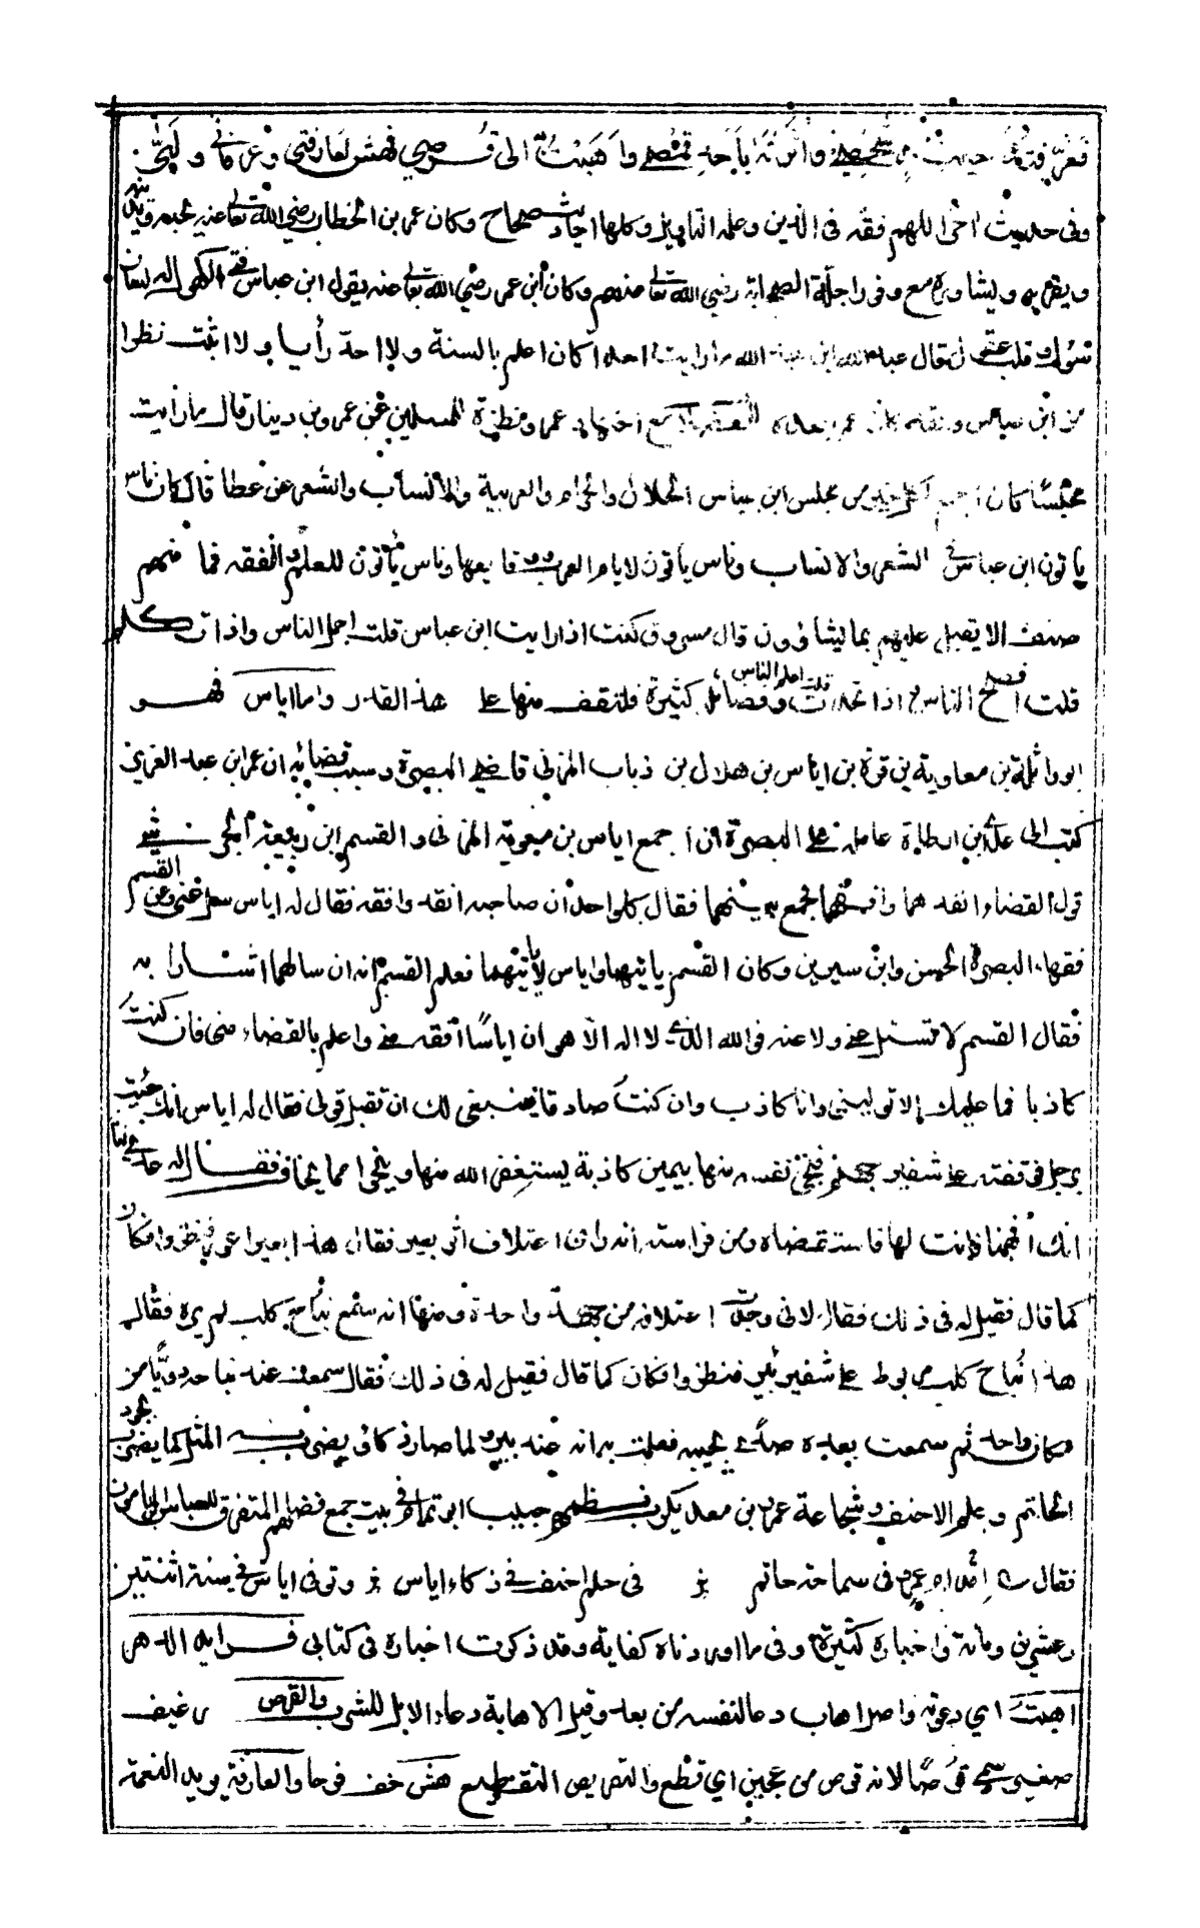 فعرفته حينئذ شخصي وآثرته بأحد قرصي وأهبت الى قرصي فهش لعارفتي وعرفاني ولبى
وفى حديث اخر اللهم فقه فى الدين وعلمه التاويل وكلها احاديث صحاح وكان عمر بن الخطاب رضي الله تعالى عنه يحبه ويدنيه
ويقربه ويشاوره مع وفور اجلة الصحابة رضي الله تعالى عنهم وكان ابن عمر رضي الله تعالى عنه يقول ابن عباس فتى الكهول له لسان
سئول وقلب عقول قال عبد الله ابن عبد الله ما رايت احدا كان اعلم بالسنة ولا احد رأيا ولا اثبت نظرا
من ابن عباس عمر يعده مع اجتهاد عمر ونظره للمسلمين عن عمرو بن دينار قال ما رأيت
مجلسا كان اجمع لكل خير من مجلس ابن عباس الحلال والحرام والعربية والانساب والشعر عن عطا قال كان ناس
ياتون ابن عباس فى الشعر والانساب وناس ياتون لايام العرب ووقايعها وناس يأتون للعلم والفقه فما منهم
صنف الا يقبل عليهم بما يشاؤون قال مسروق كنت اذا رايت ابن عباس قلت اجمل الناس واذا تكلم
قلت افصح الناس واذا تحدث قلت اعلم الناس وفضائل كثيرة فلنقف منها على هذا القدر واما اياس فهو
ابو واثلة بن معاوية بن قرة بن اياس بن هلال بن ذباب المزنى قاضي البصرة وسبب قضائه ان عمر ابن عبد العزيز
كتب الى عدي ابن ارطاة عامله على البصرة ان اجمع اياس بن معوية المزنى والقسم ابن ربيعة الجرشي
قول القضاء انفذهما وافقههما فجمع بينهما فقال كل واحد ان صاحبه انفذ وافقه فقال له اياس سل عني وعن القسم
فقهاء البصرة الحسن وابن سيرين وكان القسم ياتيهما واياس لا يأتيهما فعلم القسم انه ان سالهما اشارا به
فقال القسم لا تسئل عني ولا عنه فوالله الذي لا اله الا هو ان اياسا افقه مني واعلم بالقضاء منى فان كنت
كاذبا فما عليك الا توليني وانا كاذب وان كنت صادقا فينبغى لك ان تقبل قولى فقال له اياس انك جئت
برجل فوقفته على شفير جهنم فنجى نفسه منها بيمين كاذبة يستغفر الله منها وينجى مما يخاف فقال له عدي اما
انك اذ فهمتها فانت لها فاستقضاه ومن فراسته انه راى اعتلاف اثر بعير فقال هذا بعير اعور فنظروا فكان
كما قال فقيل له فى ذلك فقال لانى وجدت اعتلافه من جهة واحدة ومنها انه سمع نباح كلب لم يره فقال
هذا نباح كلب مربوط على شفير بئر فنظروا فكان كما قال فقيل له فى ذلك فقال سمعت عند نباحه دويا من
مكان واحد ثم سمعت بعده صدى يجيبه فعلمت به انه عند بير ولما صار ذكاؤه يضرب به المثل كما يضرب بجود
الحاتم وبحلم الاحنف وشجاعة عمرو بن معديكرب نظمهم حبيب ابو تمام فى بيت جمع فضلهم المتفرق للعباس بن المامون
فقال شعر اقدام عمرو فى سماحة حاتم فى حلم احنف في ذكاء اياس وتوفى اياس في سنة اثنتين
وعشرين ومائة واخباره كثيرة وفى ما اوردناه كفاية وقد ذكرت اخباره فى كتابى فرايد الدهر
اهبت اي دعوته واصل اهاب دعا لنفسه من بعد وقيل الاهابة دعاء الابل للشرب والقرص رغيف
صغير سمي قرصا لانه قرص من عجين اي قطع والتقريص التقطيع هش خف فرحا والعارفة يريد النعمة